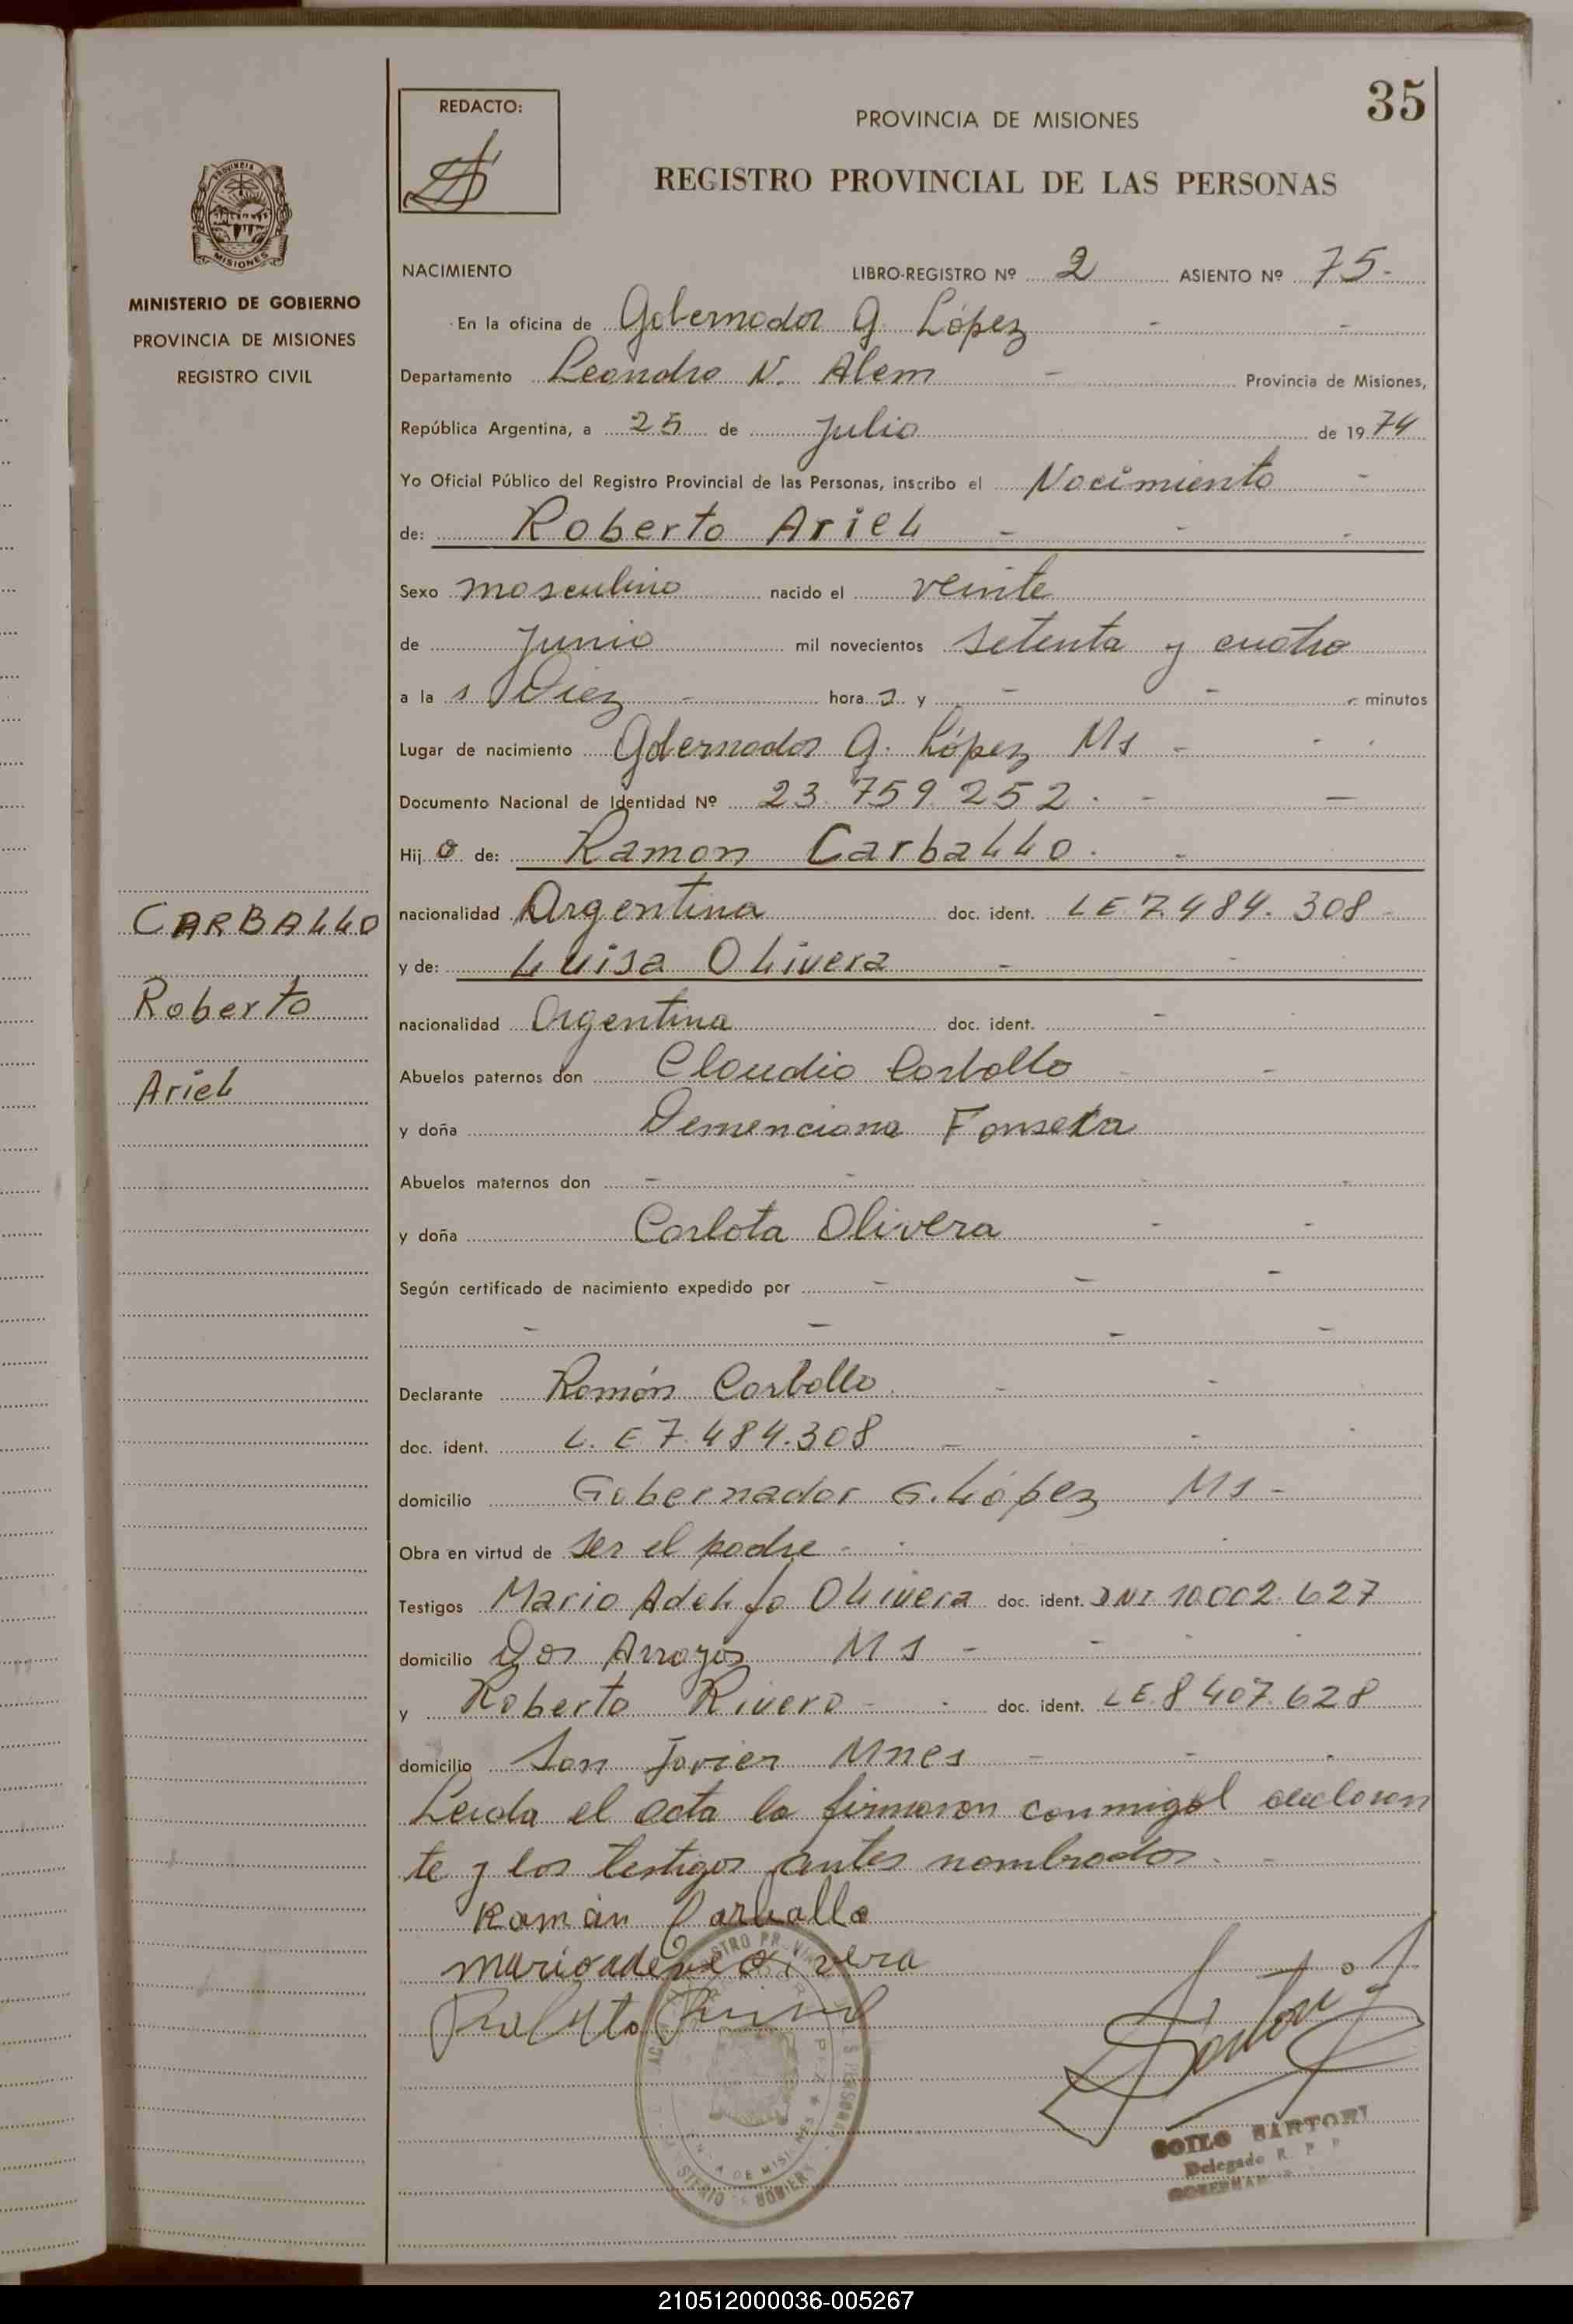 REDACTO:
35
PROVINCIA DE MISIONES
REGISTRO PROVINCIAL DE LAS PERSONAS
PROVINCIA DE
MISIONES
MINISTERIO DE GOBIERNO
PROVINCIA DE MISIONES
REGISTRO CIVIL
NACIMIENTO LIBRO-REGISTRO Nº 2 ASIENTO Nº 75-
En la oficina de Gobernador G. López - -
Departamento Leandro N. Alem - Provincia de Misiones,
República Argentina, a 25 de Julio de 19 74
Yo Oficial Público del Registro Provincial de las Personas, inscribo el Nacimiento -
de: Roberto Ariel - - -
Sexo masculino nacido el veinte
de Junio mil novecientos setenta y cuatro
a la s Diez - hora s y - - - minutos
Lugar de nacimiento Gobernador G. López Ms - - -
Documento Nacional de Identidad Nº 23.759.252. - -
Hij o de: Ramon Carballo. -
CARBALLO
Roberto
Ariel
nacionalidad Argentina doc. ident. LE 7.484.308 -
y de: Luisa Olivera - - -
nacionalidad Argentina doc. ident. - -
Abuelos paternos don Claudio Carballo - -
y doña Demenciana Fonseca
Abuelos maternos don - - - -
y doña Carlota Olivera - -
Según certificado de nacimiento expedido por - - -
- - - -
Declarante Ramón Carballo. - -
doc. ident. L. E 7.484.308 - - -
domicilio Gobernador G. López Ms -
Obra en virtud de ser el padre - -
Testigos Mario Adelfo Olivera doc. ident. DNI 10.002.627
domicilio Dos Arroyos Ms - - - -
y Roberto Rivero - - doc. ident. LE.8.407.628
domicilio San Javier Mnes - - -
Leida el acta la firmaron conmigo el declaran
te y los testigos antes nombrados. -
Ramón Carballo
SOILO SARTORI
Delegado R. P. P.
210512000036-005267